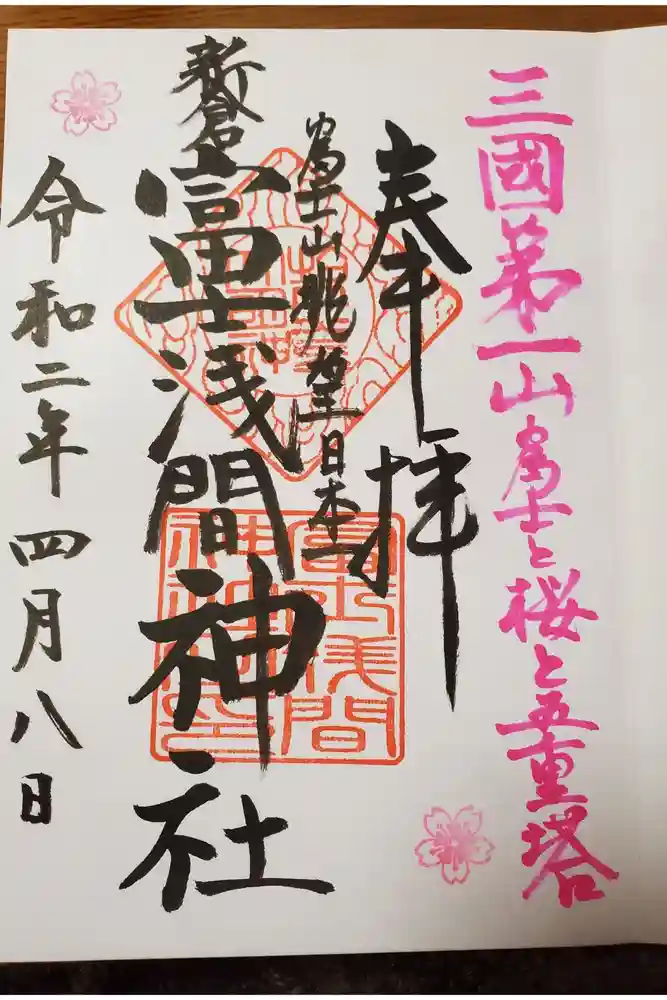 三國第一山富士と桜と五重塔
奉拝
富士山眺望日本一
新倉
富士浅間神社
令和二年四月八日
富士浅間
神社之印